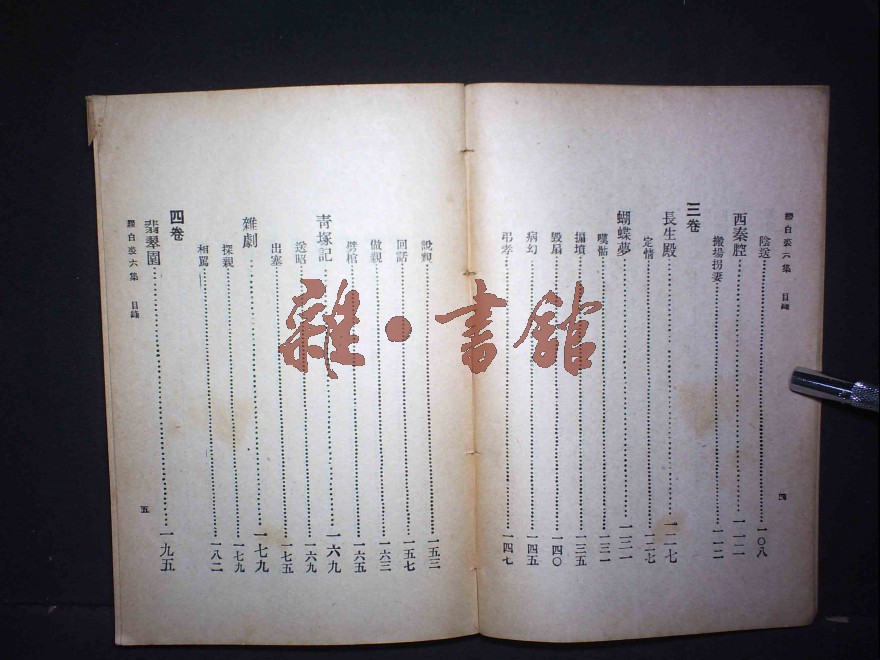 綴白裘六集 目錄
陰送 一〇八
西秦腔 一一二
搬場拐妻 一一二
三卷
長生殿 一二七
定情 一二七
蝴蝶夢 一三一
嘆骷 一三一
搧墳 一三五
毀扇 一四〇
病幻 一四五
弔孝 一四七
四
說親 一五三
回話 一五七
做親 一六三
劈棺 一六五
青塚記 一六九
送昭 一六九
出塞 一七五
雜劇 一七九
探親 一七九
相罵 一八二
四卷
翡翠園 一九五
綴白裘六集 目錄
五
雜·書館